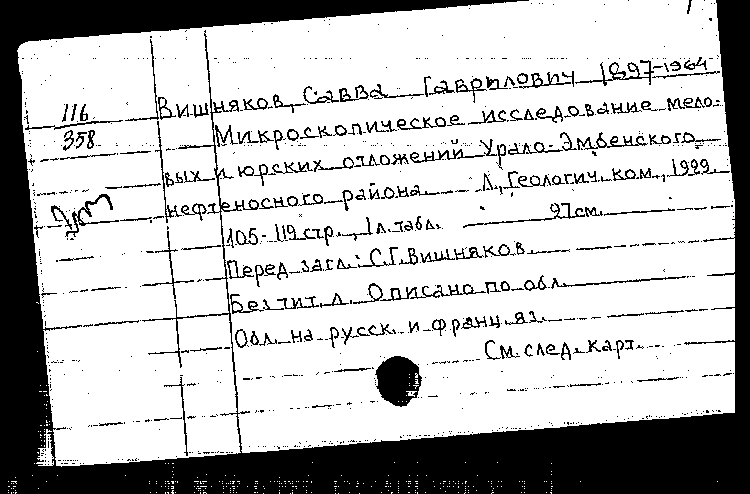 116
358
Вишняков, Савва Гаврилович 1897-1964
Микроскопическое исследование мело-
вых и юрских отложений Урало-Эмбенского
нефтеносного района. Л., Геологич. ком., 1929.
105-119 стр., 1 л. табл. 27 см.
Перед загл.: С.Г. Вишняков.
Без тит. л. Описано по обл.
Обл. на русск. и франц. яз.
См. след. карт.